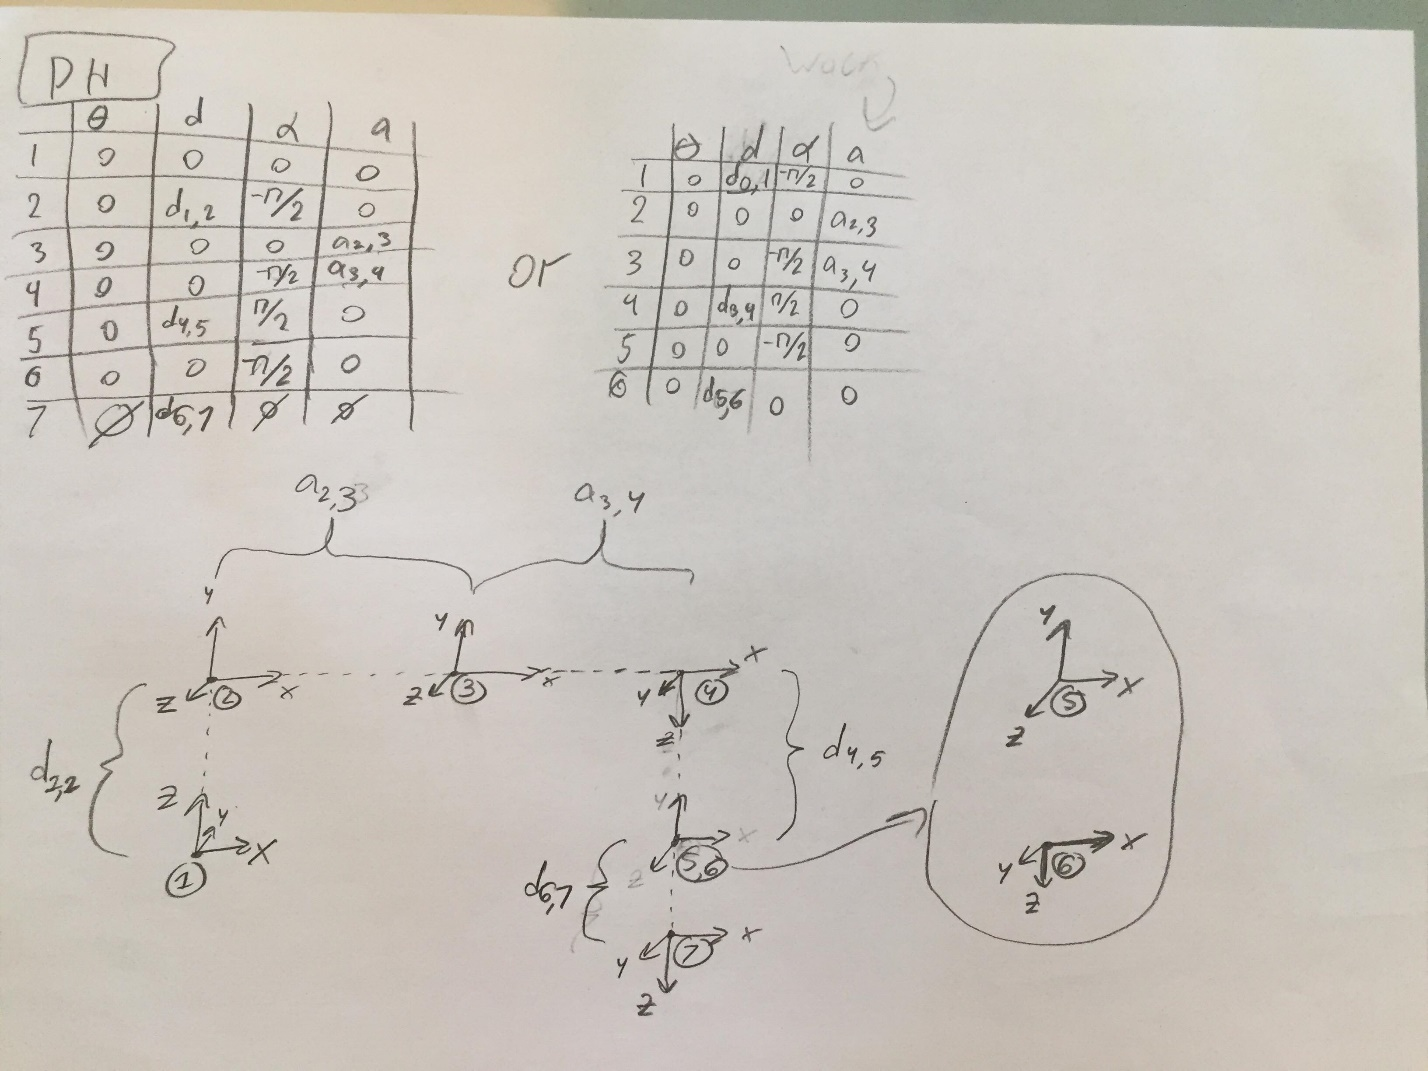 DH
θ d α a
1 0 0 0 0
2 0 d1,2 -π/2 0
3 0 0 0 a2,3
4 0 0 -π/2 a3,4
5 0 d4,5 π/2 0
6 0 0 -π/2 0
7 ∅ d6,7 ∅ ∅
or
θ d α a
1 0 d0,1 -π/2 0
2 0 0 0 a2,3
3 0 0 -π/2 a3,4
4 0 d3,4 π/2 0
5 0 0 -π/2 0
6 0 d5,6 0 0
a2,3 a3,4
Y Y
X
Z 2 X Z 3 X Y 4
Z
d2,2 d4,5
Z Y X
1
Y X
Z 5,6
d6,7
Y 7 X
Z
Y
5 X
Z
Y 6 X
Z